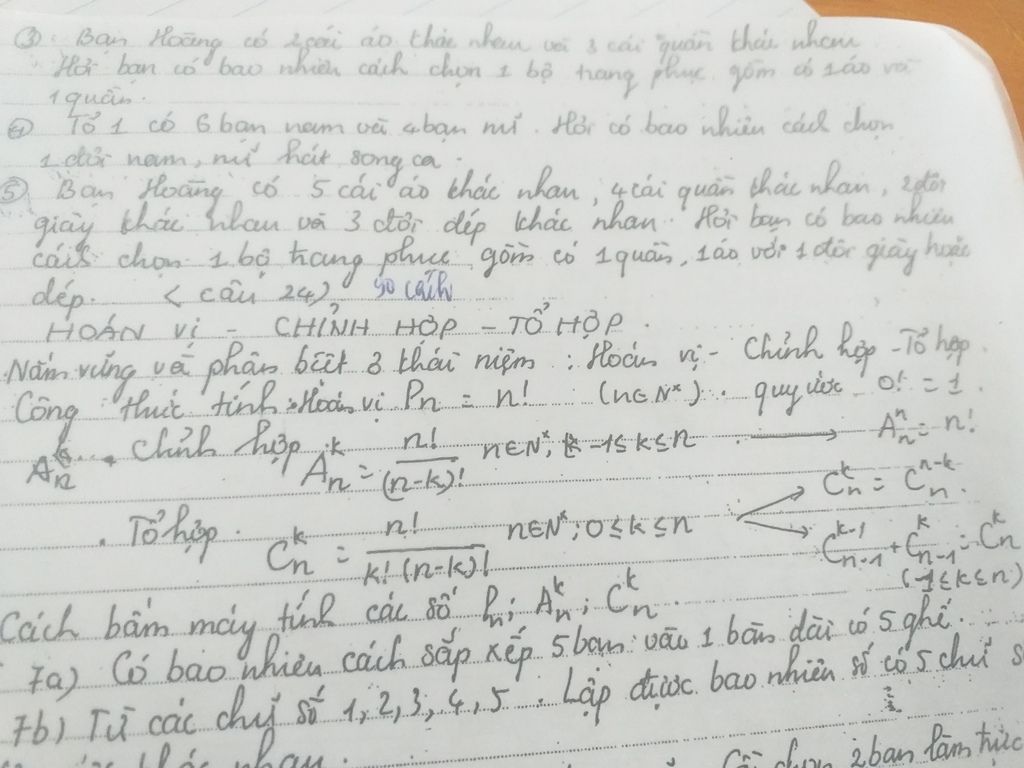 ③ Bạn Hoàng có 2 cái áo khác nhau và 3 cái quần khác nhau
Hỏi bạn có bao nhiêu cách chọn 1 bộ trang phục gồm có 1 áo và
1 quần.
④ Tổ 1 có 6 bạn nam và 4 bạn nữ. Hỏi có bao nhiêu cách chọn
1 đôi nam, nữ hát song ca.
⑤ Bạn Hoàng có 5 cái áo khác nhau, 4 cái quần khác nhau, 2 đôi
giày khác nhau và 3 đôi dép khác nhau. Hỏi bạn có bao nhiêu
cách chọn 1 bộ trang phục gồm có 1 quần, 1 áo với 1 đôi giày hoặc
dép. < câu 24) 90 cách
HOÁN VỊ - CHỈNH HỢP - TỔ HỢP.
Nắm vững và phân biệt 3 khái niệm: Hoán vị - Chỉnh hợp - Tổ hợp.
Công thức tính. Hoán vị Pn = n! (n∈N*). quy ước 0! = 1.
Chỉnh hợp A_n^k = n!/(n-k)! n∈N*; -1≤k≤n → A_n^n = n!
A_n^k
. Tổ hợp. C_n^k = n!/(k!(n-k)!) n∈N*; 0≤k≤n
C_n^k = C_n^{n-k}.
C_{n-1}^{k-1} + C_{n-1}^k = C_n^k
(-1≤k≤n)
Cách bấm máy tính các số Pn; A_n^k; C_n^k.
7a) Có bao nhiêu cách sắp xếp 5 bạn vào 1 bàn dài có 5 ghế.
7b) Từ các chữ số 1, 2, 3, 4, 5. Lập được bao nhiêu số có 5 chữ s
khác nhau. chọn 2 bạn làm trực